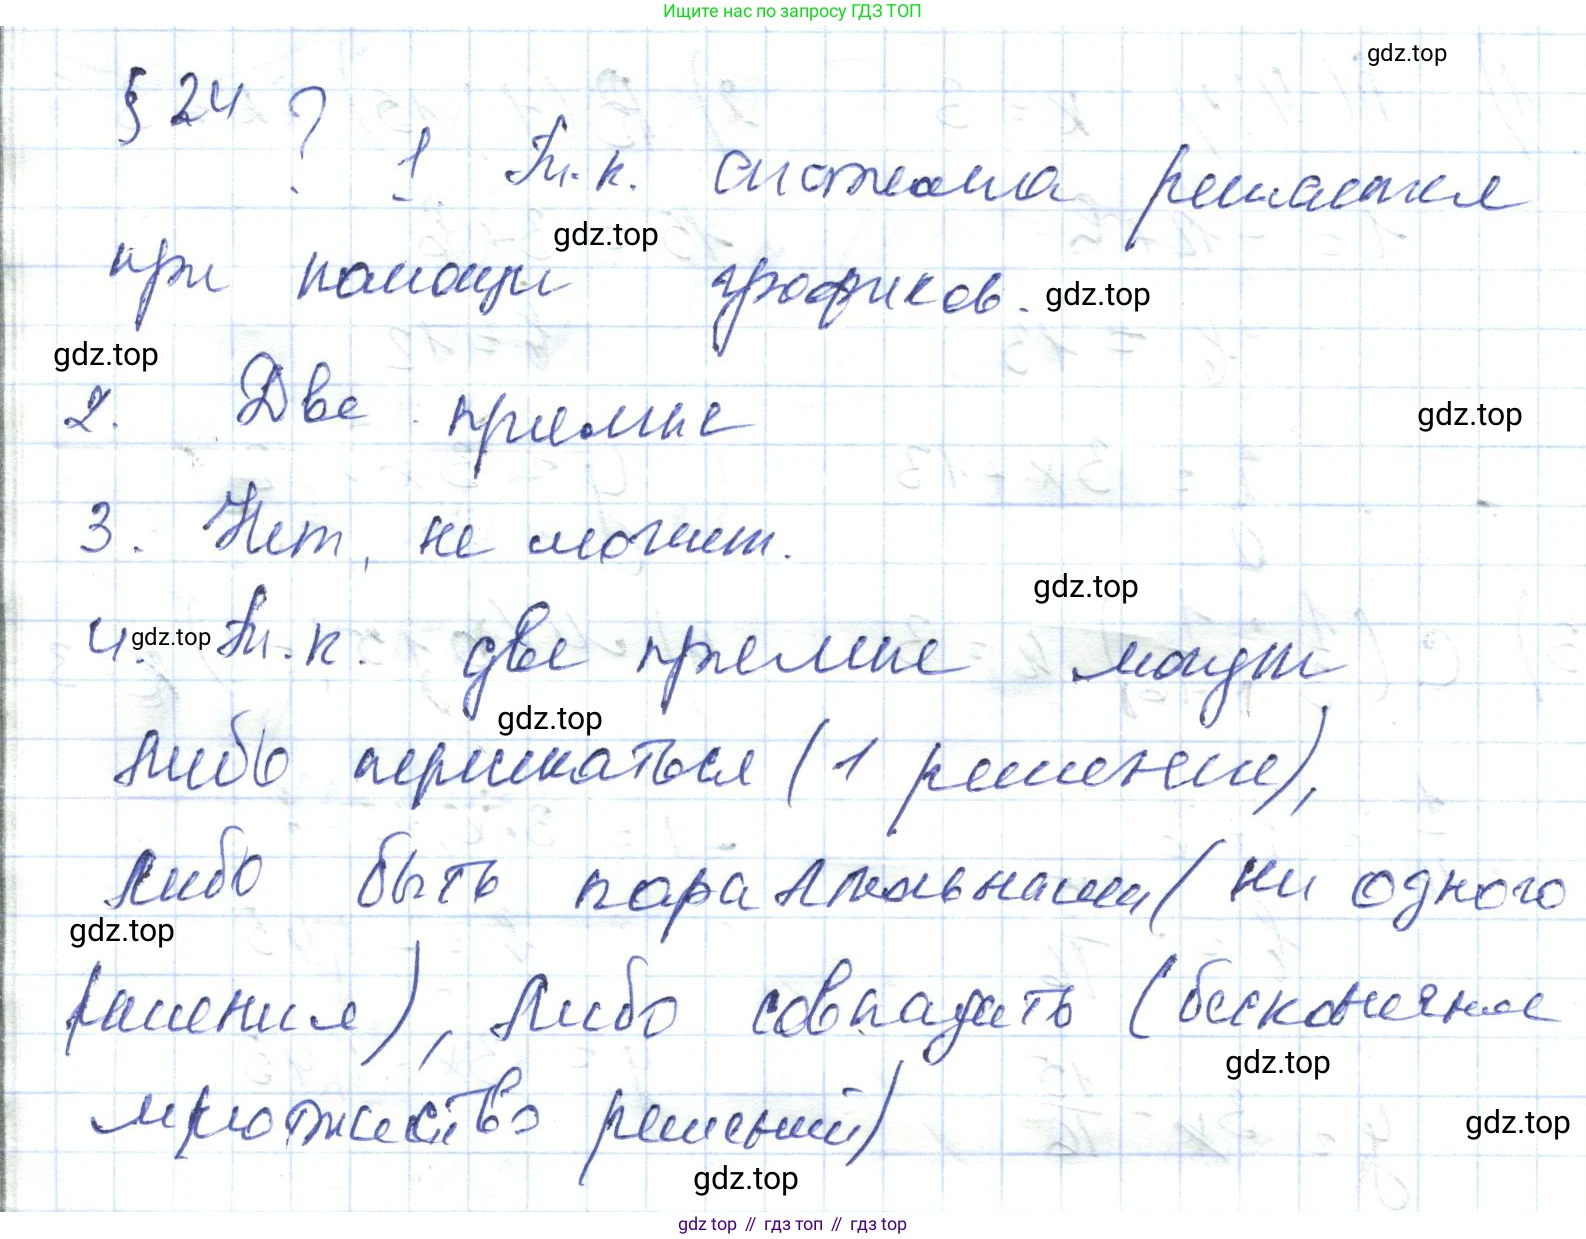 Ищите нас по запросу ГДЗ ТОП
gdz.top
§ 24 ? 1. Т.к. система решается
gdz.top
при помощи графиков. gdz.top
gdz.top
2. Две прямые
gdz.top
3. Нет, не может.
gdz.top
4. gdz.top Т.к. две прямые могут
gdz.top
либо пересекаться (1 решение),
либо быть параллельными (ни одного
gdz.top
решения), либо совпадать (бесконечное
gdz.top
множество решений)
gdz.top
gdz.top
gdz top // гдз топ // гдз top